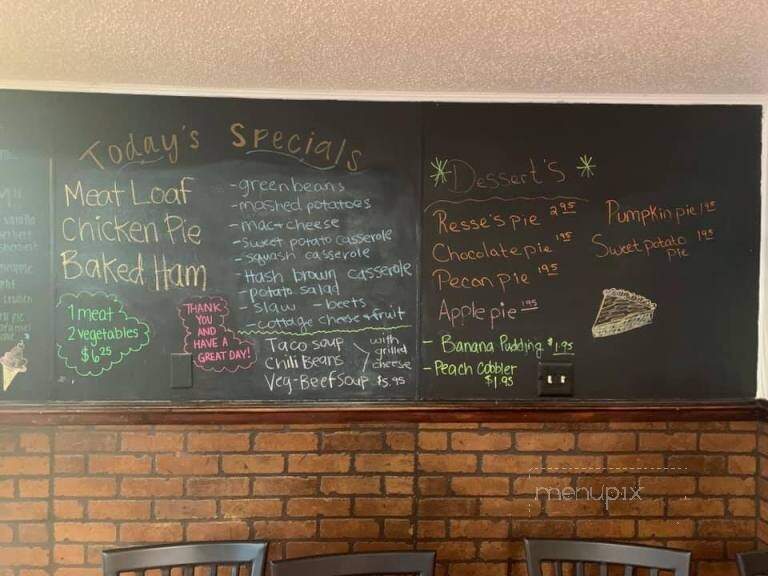 Today's Specials
Meat Loaf
Chicken Pie
Baked Ham
1 meat
2 vegetables
$6.25
THANK
YOU
AND
HAVE A
GREAT DAY!
- green beans
- mashed potatoes
- mac + cheese
- sweet potato casserole
- squash casserole
- Hash brown casserole
- potato salad
- slaw - beets
- cottage cheese + fruit
Taco soup
Chili Beans
Veg-Beef soup $5.95
with
grilled
cheese
Dessert's
Resse's pie 2.95
Chocolate pie 1.95
Pecan pie 1.95
Apple pie 1.95
- Banana Pudding $1.95
- Peach Cobbler
$1.95
Pumpkin pie 1.95
Sweet potato 1.95
pie
menupix